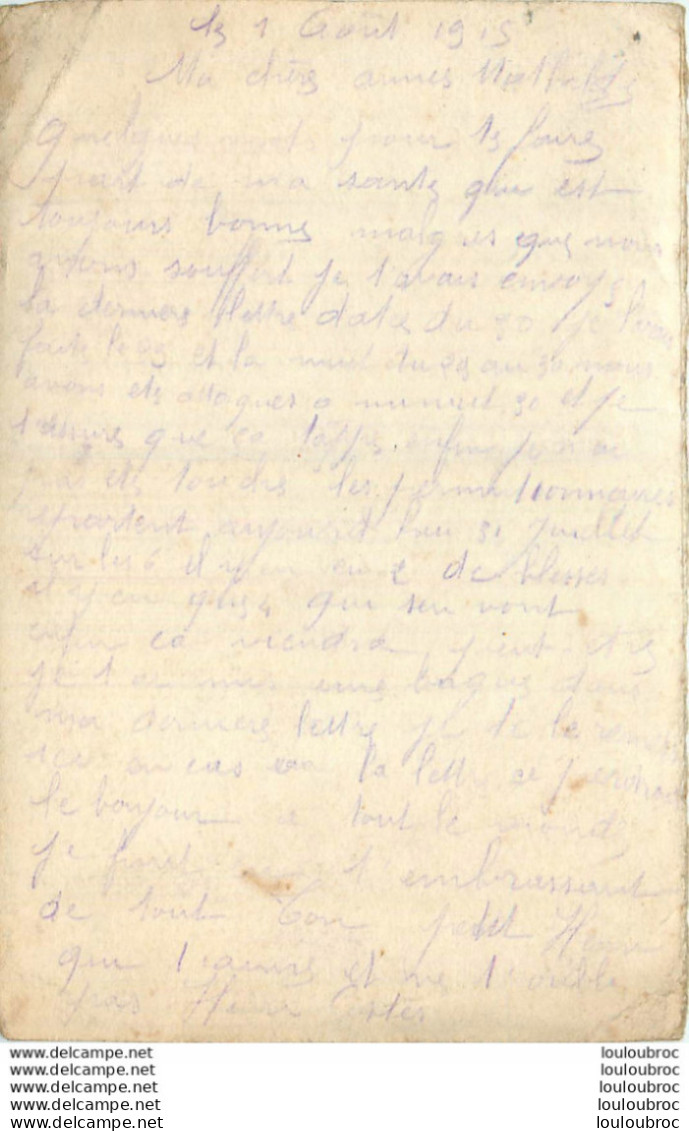 le 1 Août 1915
Ma chère Mathilde
quelques mots pour te faire
part de ma santé qui est
toujours bonne malgres que nous
souffert je t'avais envoyes
la dernière lettre date du 30 je l'avais
faite le 29 et la nuit du 29 au 30 nous
avons ete attaques a minuit 30 et je
t'assure que ca tappe enfin
ete les permitionnaires
repartent aujourd hui 31 juillet
sur les 6 il y en eu 2 de blesses
il y en qui sen vont
enfin ca viendra peut etre
je t ai mis une bague dans
ma derniere lettre je
en cas la lettre ce
le bonjour a tout le monde
je finit en t'embrassant
de tout Ton petit Henri
qui t'aime et ne t'oublie
pas Henri
www.delcampe.net louloubroc
www.delcampe.net louloubroc
www.delcampe.net louloubroc
www.delcampe.net louloubroc
www.delcampe.net louloubroc